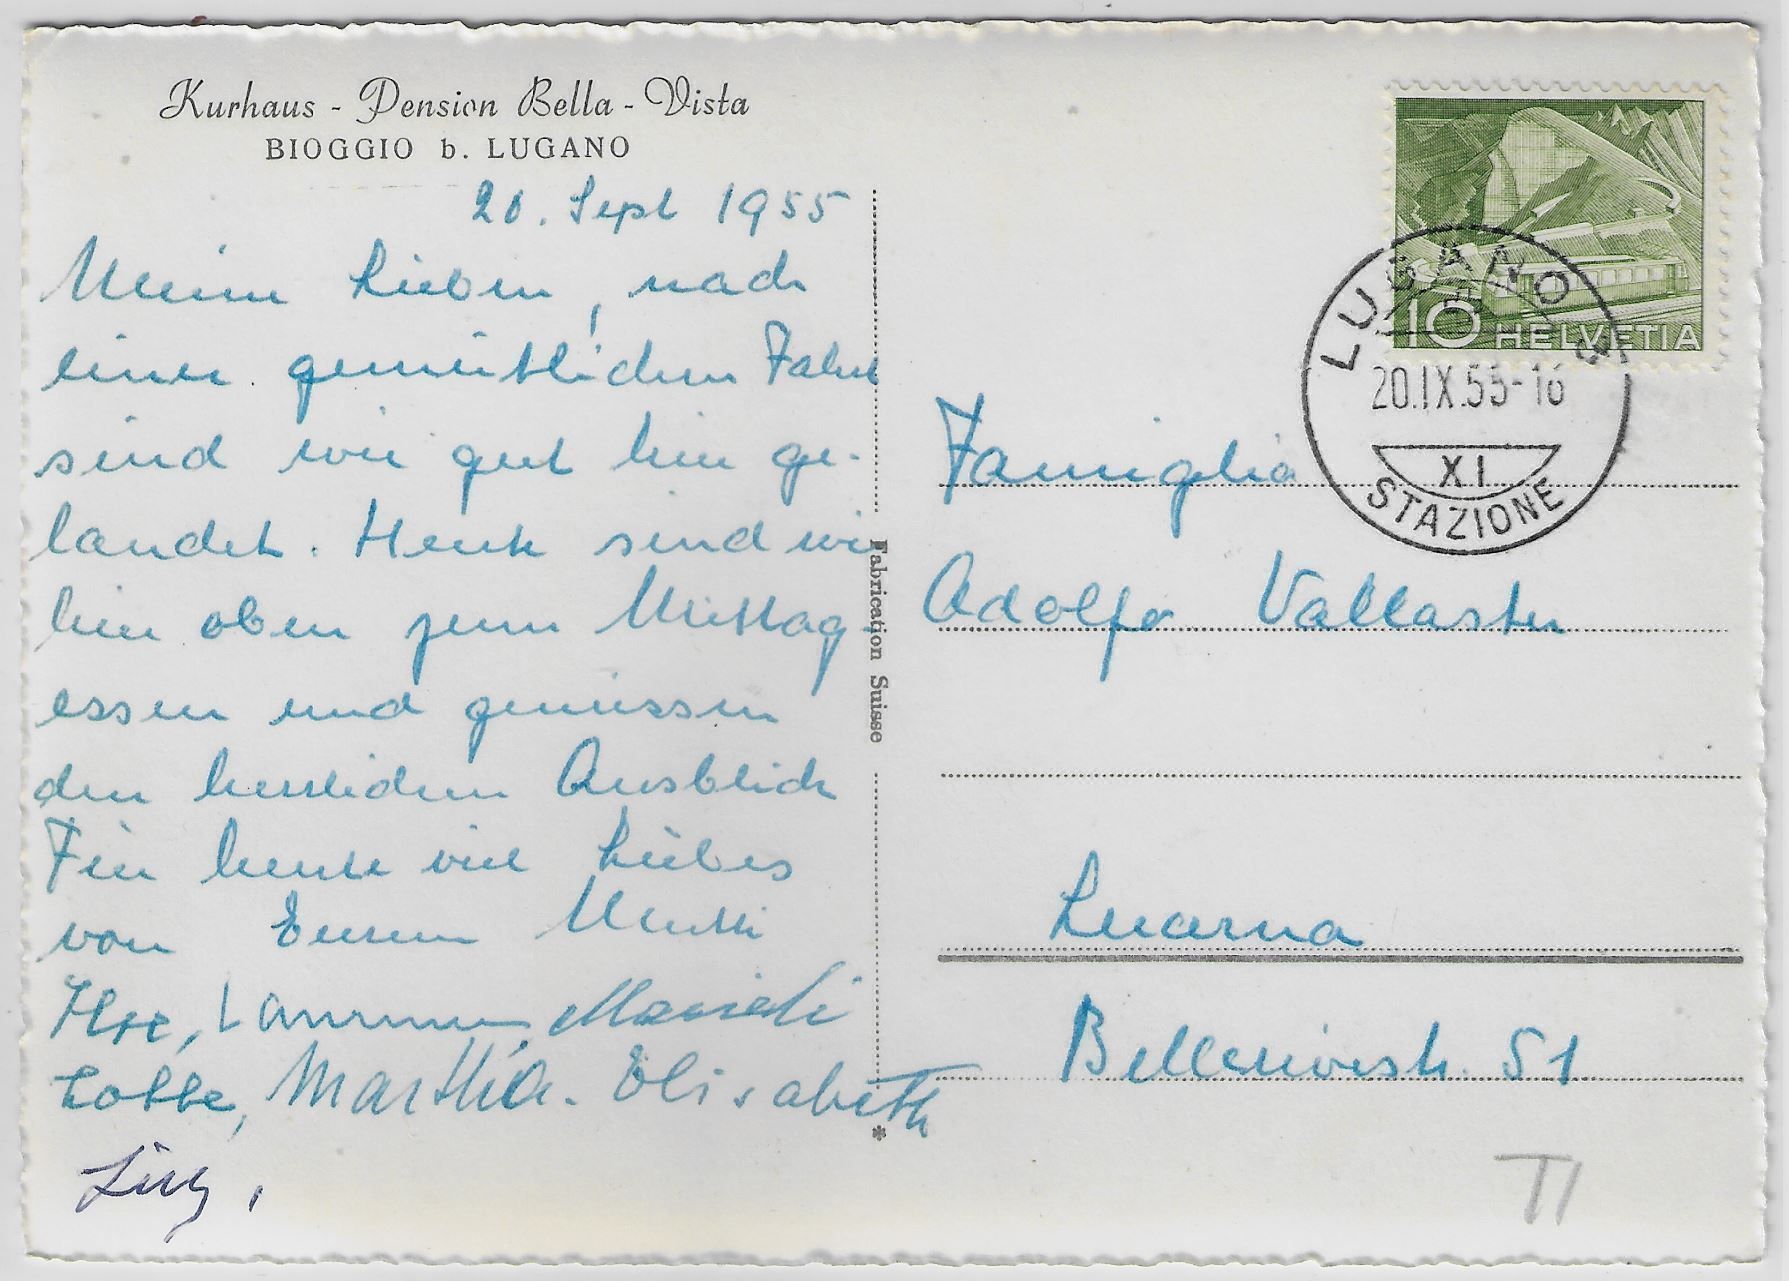 Kurhaus - Pension Bella - Vista
BIOGGIO b. LUGANO
20. Sept 1955
Meine Lieben, nach
einer gemütlichen Fahrt
sind wir gut hier ge-
landet. Heute sind wir
hier oben zum Mittag-
essen und geniessen
den herrlichen Ausblick
Für heute viel Liebes
von Eurem Mutti
Ilse, Mariedi
Lotte, Martha. Elisabeth
Fabrication Suisse
*
10 HELVETIA
LUGANO
20.IX.55-16
XI
STAZIONE
Famiglia
Adolfo Vallaster
Lucerna
Bellerivestr. 51
TI